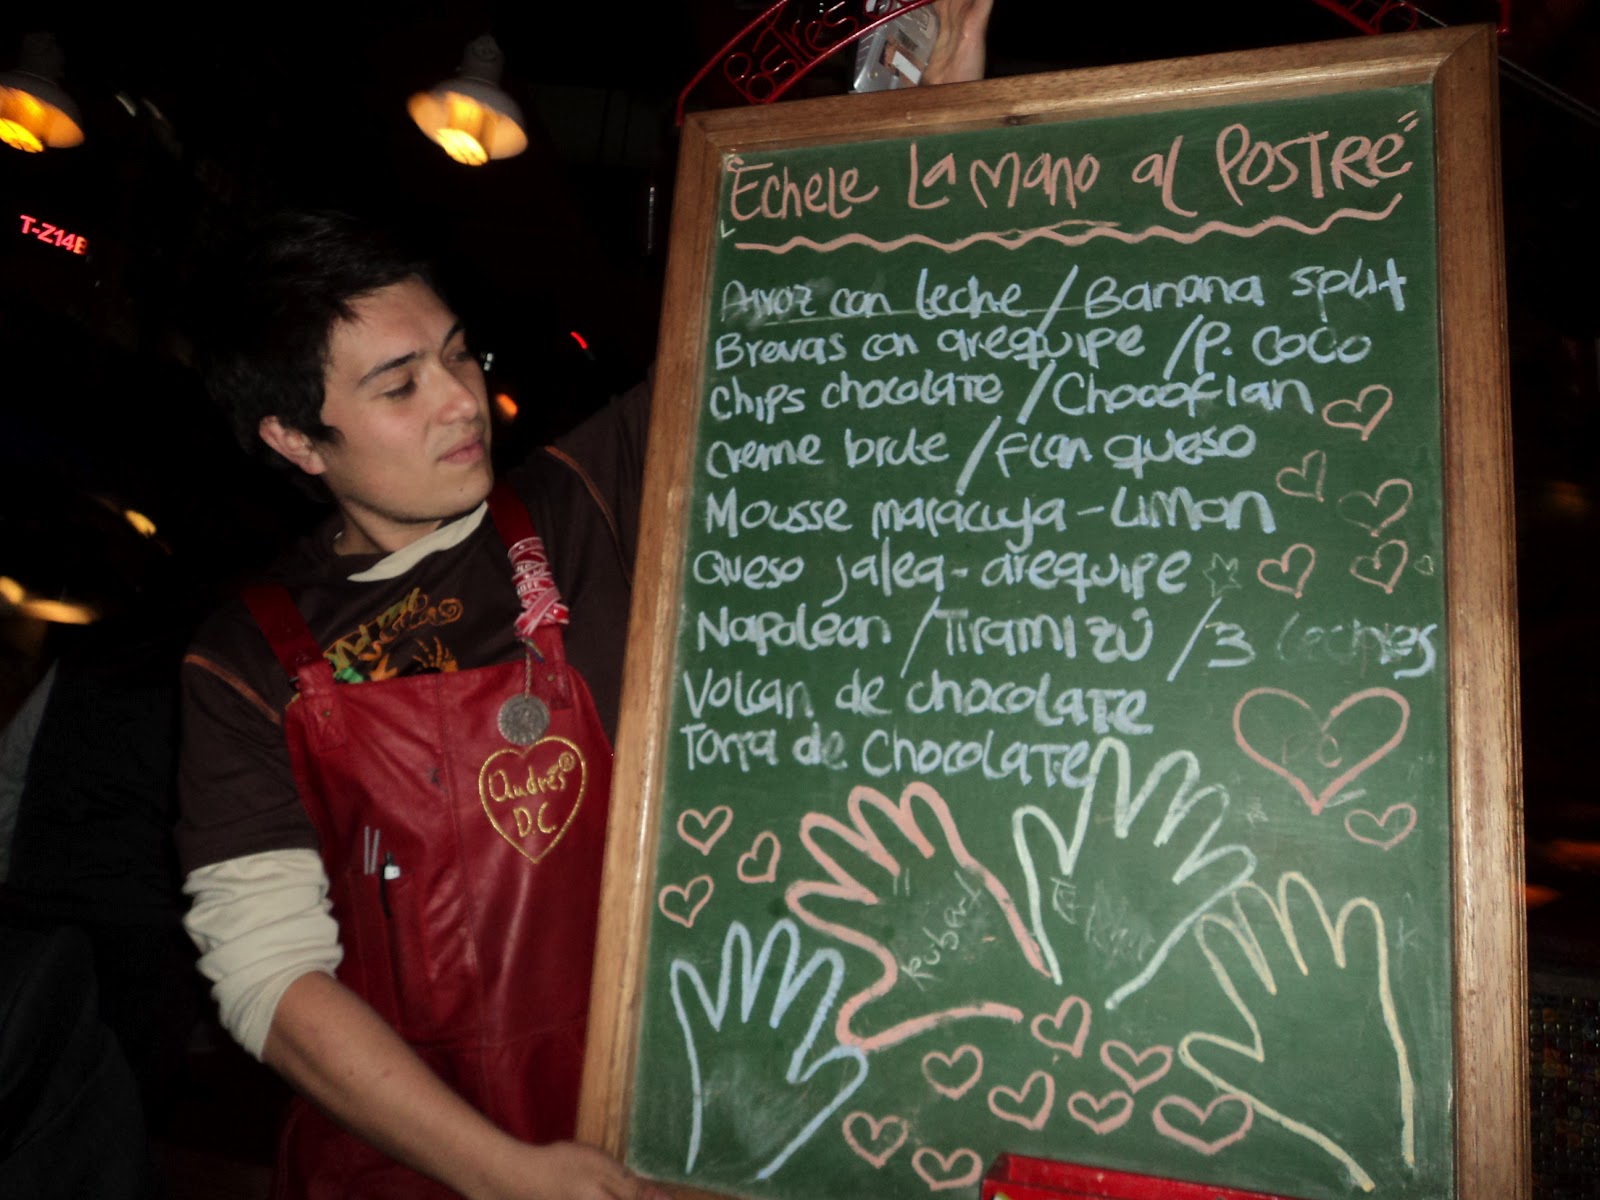 Postres
T-Z14B
"Echele La mano al Postre"
Arroz con leche / Banana split
Brevas con arequipe / P. coco
Chips chocolate / Chocoflan
Creme brule / Flan queso
Mousse maracuya - Limon
Queso jalea - arequipe
Napoleon / Tiramizú / 3 leches
Volcan de chocolate
Torta de Chocolate
Andrés®
D.C.